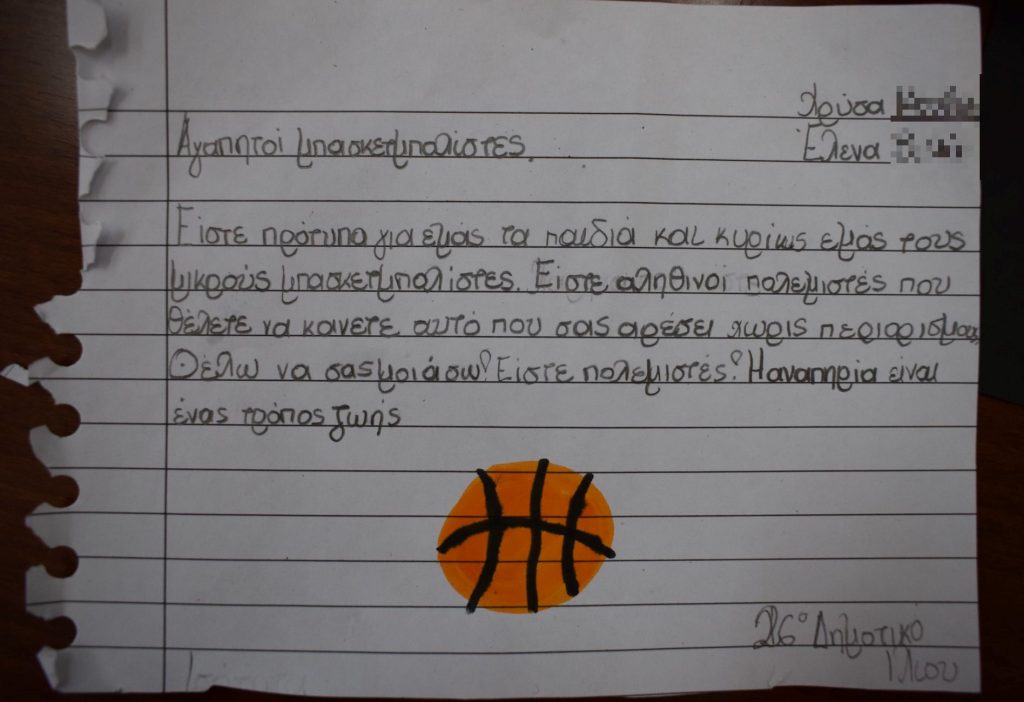 Χρύσα
Αγαπητοί μπασκετμπολίστες.
Έλενα
Είστε πρότυπο για εμάς τα παιδιά και κυρίως εμάς τους
μικρούς μπασκετμπολίστες. Είστε αληθινοί πολεμιστές που
θέλετε να κανετε αυτό που σας αρέσει χωρις
Θέλω να σας μοιάσω! Είστε πολεμιστές! Η αναπηρία είναι
ένας τρόπος ζωής
26º Δημοτικο
Ιλιου